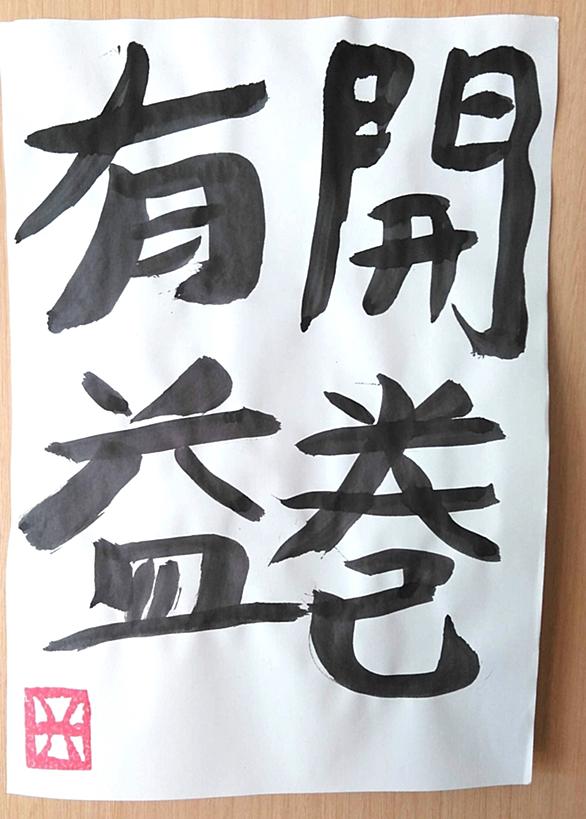 開巻
有益